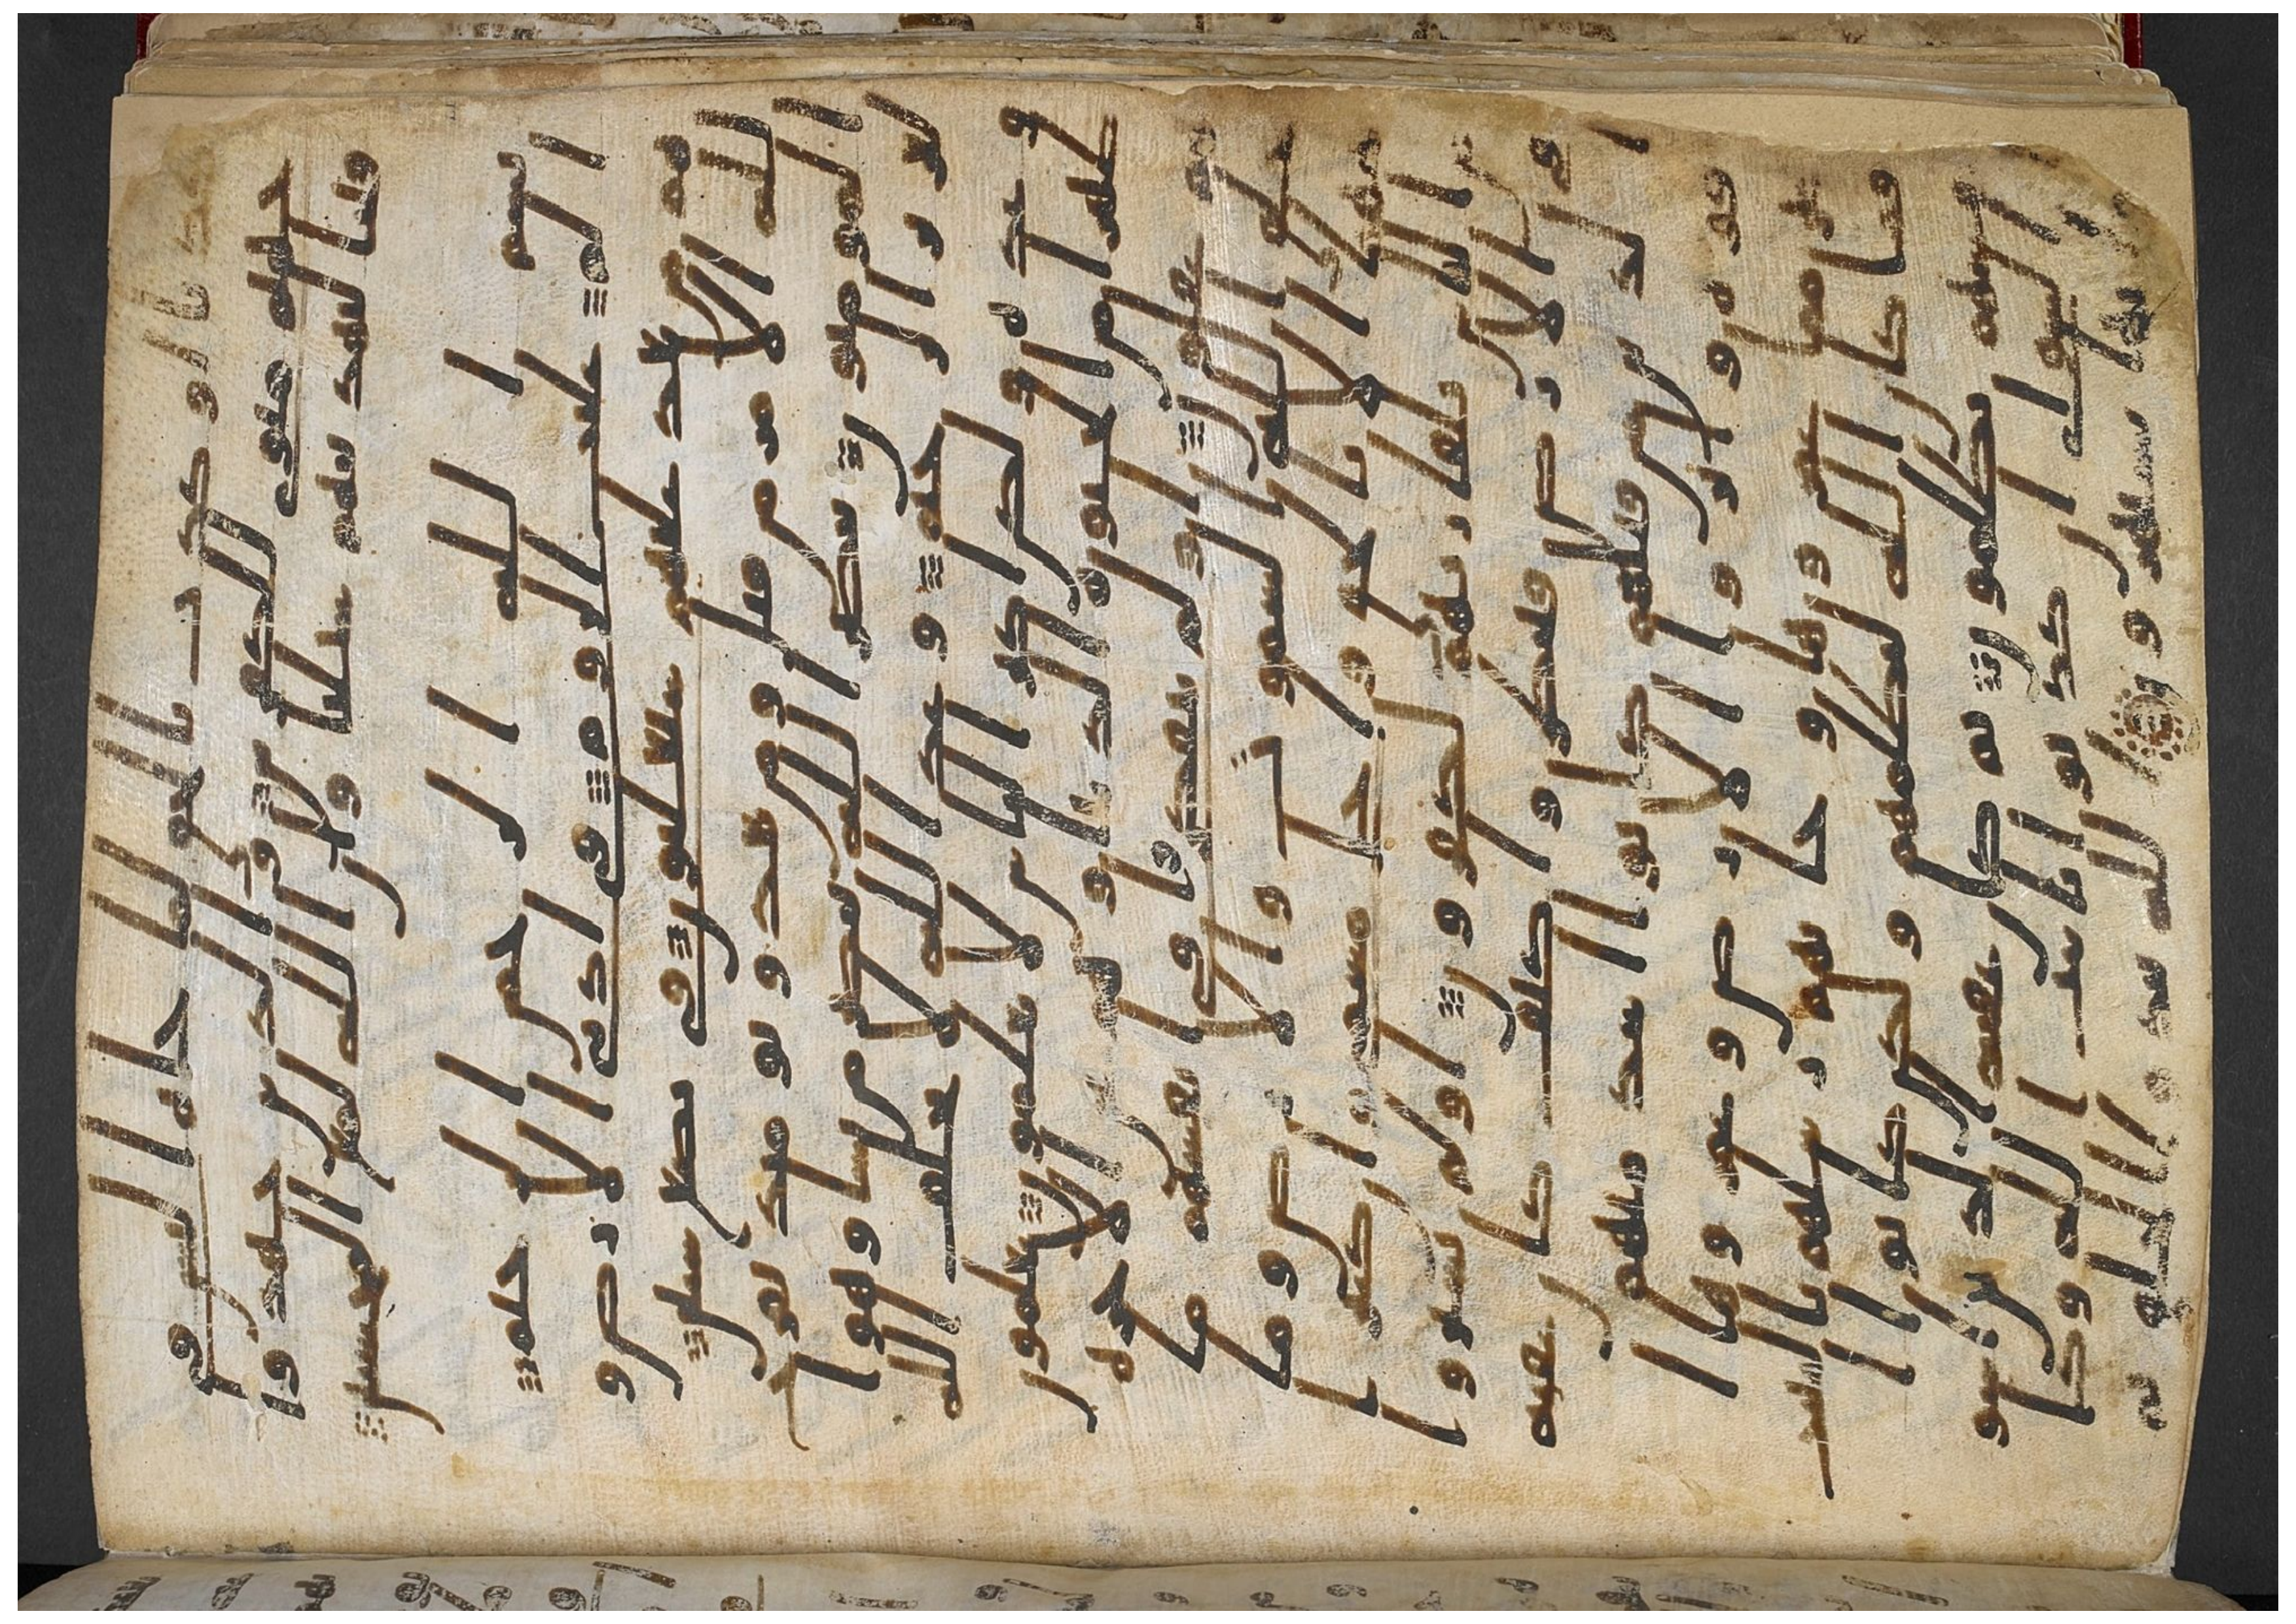 كذبا او كذب بالحق لما جاه اليس في
جهنم مثوى للكفرين والذين جهدوا
فينا لنهدينهم سبلنا وان الله لمع المحسنين
بسم الله الرحمن الرحيم
الم غلبت الروم في ادنى الارض و
هم من بعد غلبهم سيغلبون في بضع سنين
لله الامر من قبل ومن بعد ويومئذ يفرح
المومنون بنصر الله ينصر من يشا وهو ا
لعزيز الرحيم وعد الله لا يخلف الله
وعده ولكن اكثر الناس لا يعلمون يعلمون
ظهرا من الحيوة الدنيا وهم عن الاخرة
هم غفلون اولم يتفكروا في انفسهم ما
خلق الله السموت والارض وما
بينهما الا بالحق واجل مسمى وان كثيرا
من الناس بلقاي ربهم لكفرون اولم يسيروا
في الارض فينظروا كيف كان عقبة
الذين من قبلهم كانوا اشد منهم
قوة واثاروا الارض وعمروها ا
كثر مما عمروها وجاتهم رسلهم بالبينت
فما كان الله ليظلمهم ولكن كانوا ا
نفسهم يظلمون ثم كان عقبة الذين اسوا
السواى ان كذبوا بايت الله وكانوا
بها يستهزون الله يبدوا الخلق ثم